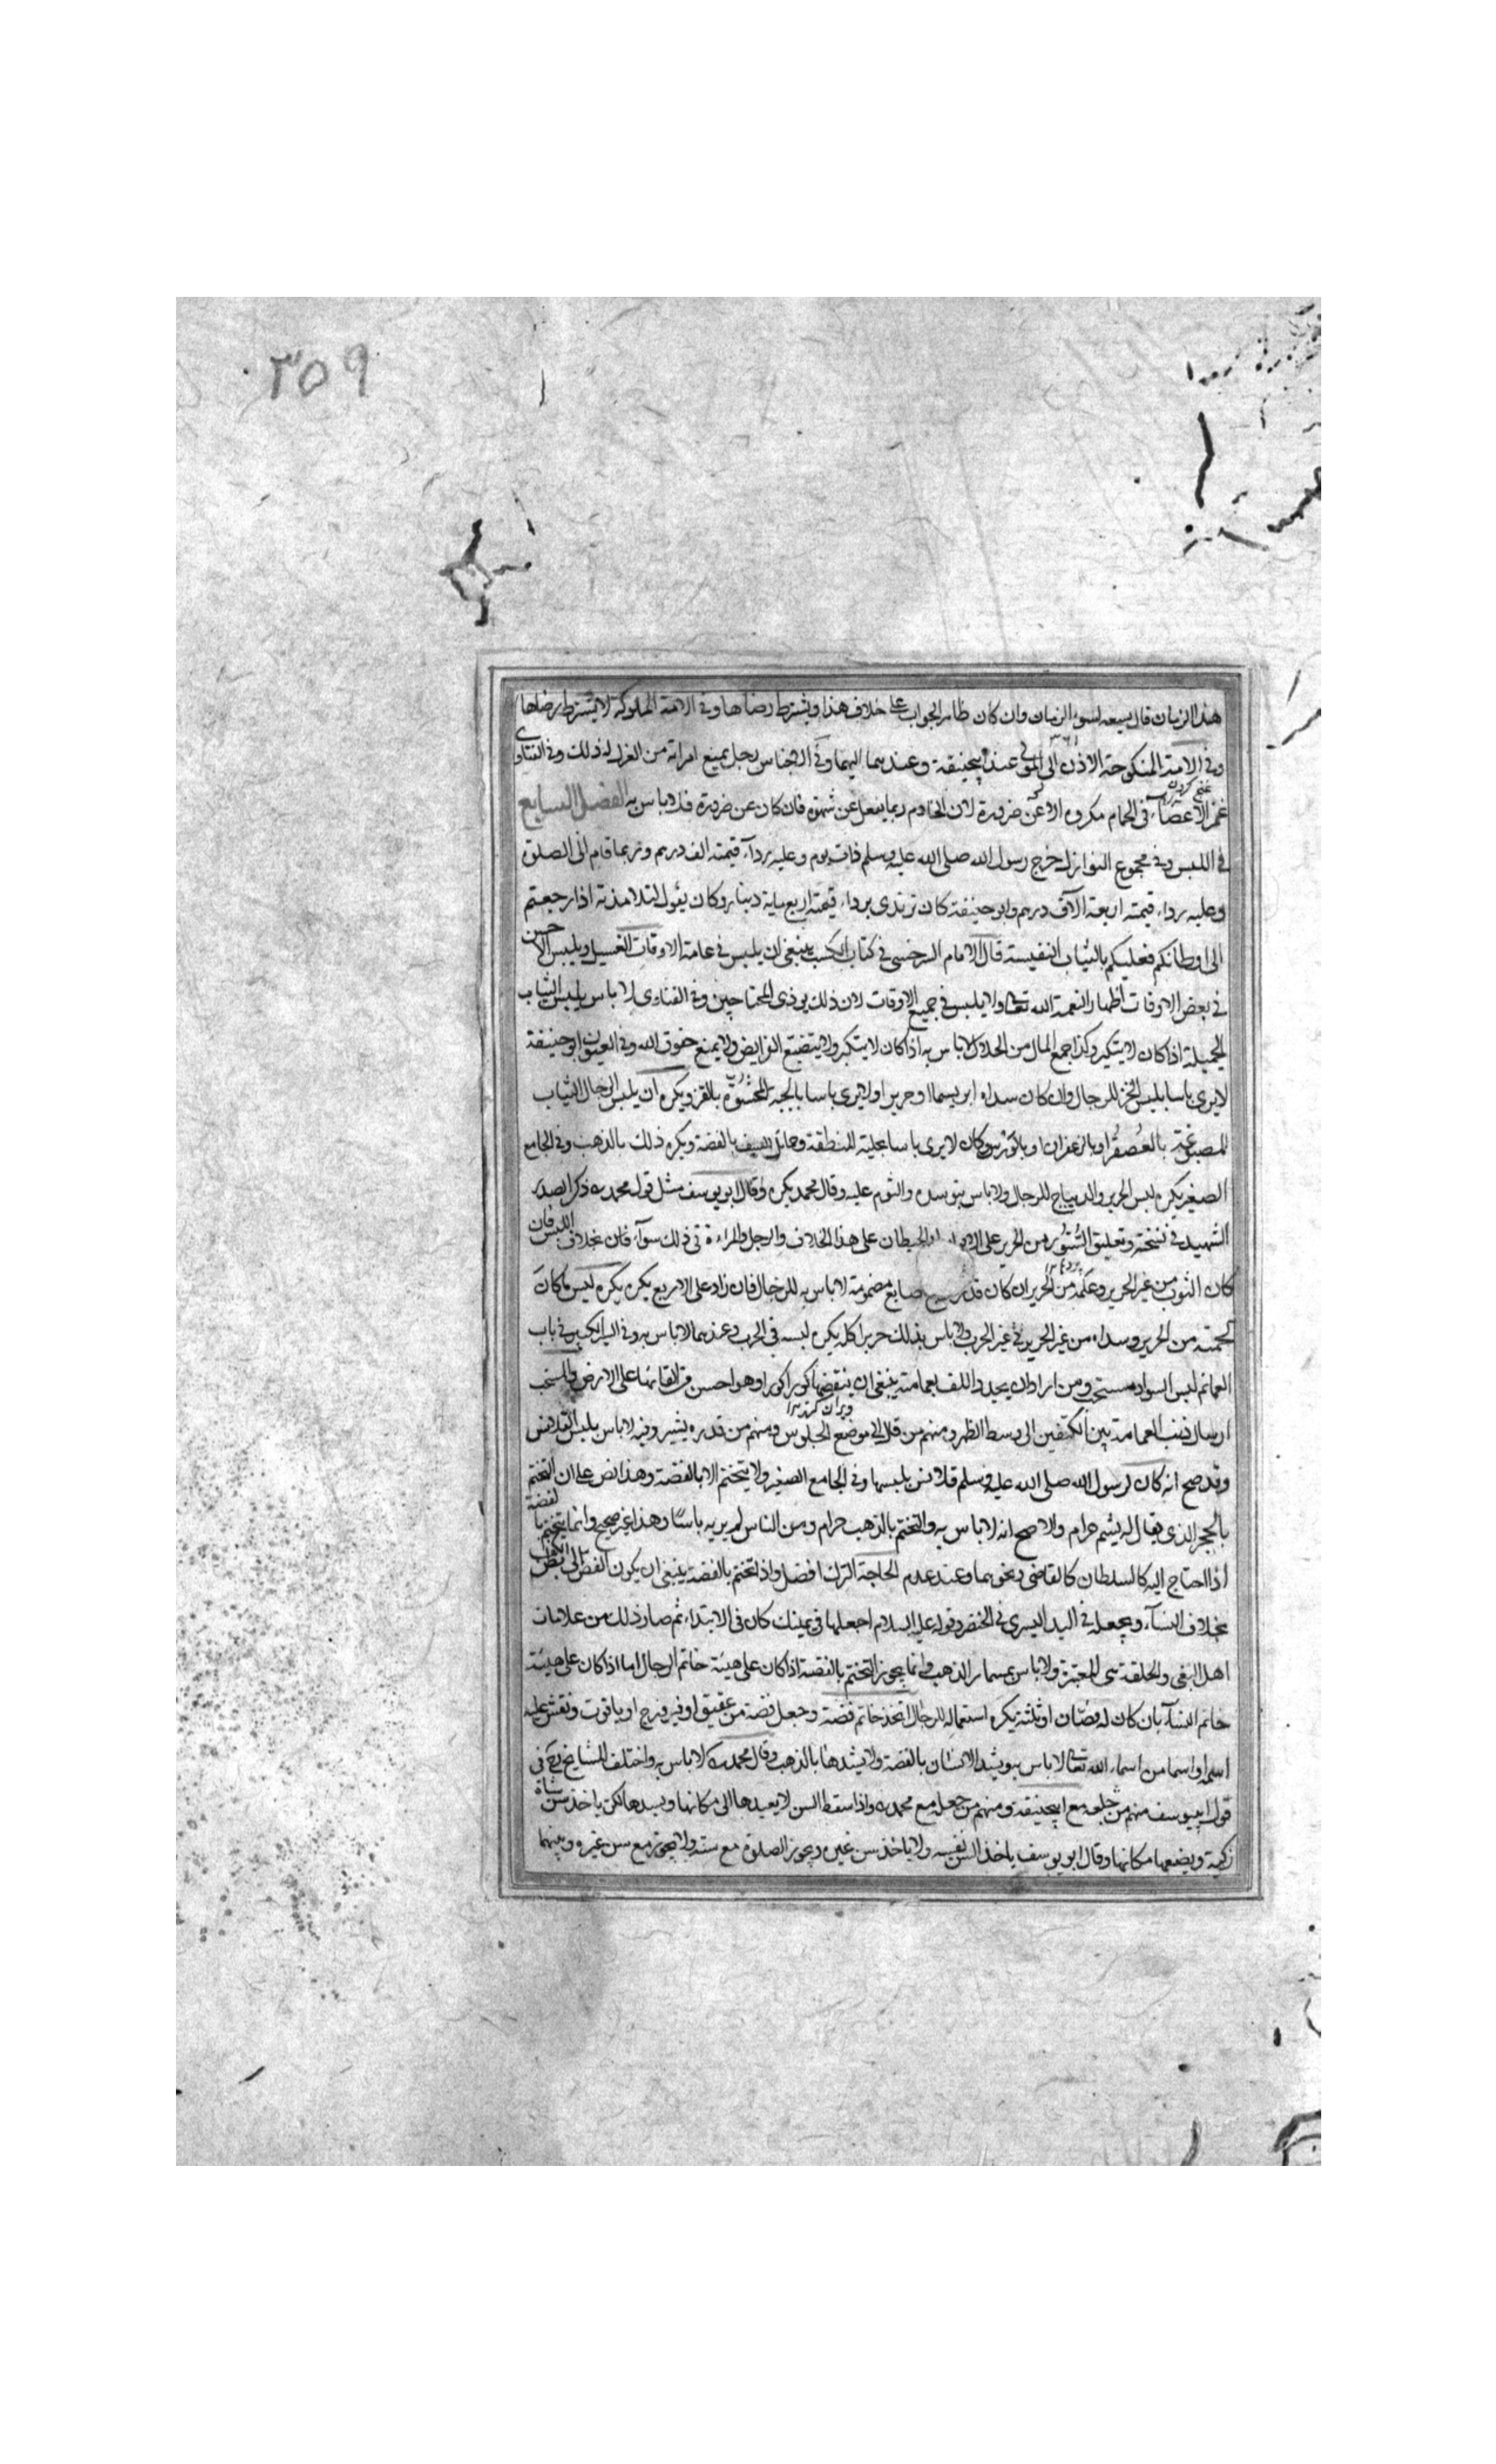 ٣٥٩
هذا الزمان قال يسعه لسوء الزمان وان كان ظاهر الجواب على خلاف هذا ويشترط رضاها وفى الامة المملوكة لا يشترط رضاها
وفى الامة المنكوحة الاذن الى المولى عند ابيحنيفة وعندهما اليهما وفى الاجناس رجل يمنع امراته من الغزل له ذلك وفى الفتاوى
غمز الاعضاء فى الحمام مكروه الا عن ضرورة لان الخادم ربما يفعل عن شهوة فان كان عن ضرورة فلا باس به الفصل السابع
فى اللبس وفى مجموع النوازل خرج رسول الله صلى الله عليه وسلم ذات يوم وعليه رداء قيمته الف درهم وربما قام الى الصلوة
وعليه رداء قيمته اربعة الآف درهم وابو حنيفة كان يرتدى برداء قيمته اربع ماية دينار وكان يقول لتلامذته اذا رجعتم
الى اوطانكم فعليكم بالثياب النفيسة قال الامام السرخسى فى كتاب الكسب ينبغى ان يلبس فى عامة الاوقات الغسيل ويلبس الاحسن
فى بعض الاوقات اظهار النعمة الله تعالى ولا يلبس فى جميع الاوقات لان ذلك يوذى المحتاجين وفى الفتاوى لا باس بلبس الثياب
الجميلة اذا كان لا يتكبر وكذا جمع المال من الحلال لا باس به اذا كان لا يتكبر ولا يتضيع الفرايض ولا يمنع حقوق الله وفى العيون ابو حنيفة
لا يرى باسا بلبس الخز للرجال وان كان سداه ابريسما او حرير او لا يرى باسا بالجبة المحشوة بالقز ويكره ان يلبس الرجال الثياب
المصبوغة بالعصفر او بالزعفران او بالورس وكان لا يرى باسا بحلية المنطقة وحمائل السيف بالفضة ويكره ذلك بالذهب وفى الجامع
الصغير يكره لبس الحرير والديباج للرجال ولا باس بتوسده والنوم عليه وقال محمد يكره وقال ابو يوسف مثل قول محمد ذكر الصدر
الشهيد فى نسخته وتعليق الستور من الحرير على الحيطان على هذا الخلاف والرجل والمراءة فى ذلك سوآء بخلاف اللبس فان
كان الثوب من غير الحرير وعلمه من الحرير ان كان قدر اصابع مضمومة لا باس به للرجال فان زاد على الاربع يكره يكره لبس ما كان
لحمته من الحرير وسداه من غير الحرير فى غير الحرب ولا باس بذلك حربا كله يكره لبسه فى الحرب وعندهما لا باس به وفى السير الكبير فى باب
العمائم لبس السواد مستحب ومن اراد ان يجدد اللف بعمامته ينبغى ان ينقضها كورا كورا وهو احسن من القائها على الارض والمستحب
ارسال ذنب العمامة بين الكتفين الى وسط الظهر ومنهم من قال الى موضع الجلوس ومنهم من قدره بشبر وفيه لا باس بلبس القلانس
وقد صح انه كان لرسول الله صلى الله عليه وسلم قلانس يلبسها وفى الجامع الصغير ولا يتختم الا بالفضة وهذا نص على ان التختم
بالحجر الذى يقال له يشم حرام والاصح انه لا باس به والتختم بالذهب حرام ومن الناس لم ير به باسا وهذا غير صحيح وانما يتختم بالفضة
اذا احتاج اليه كالسلطان كالقاضى ونحوهما وعند عدم الحاجة الترك افضل واذا تختم بالفضة ينبغى ان يكون الفص الى بطن الكف
بخلاف النسآء ويجعله فى اليد اليسرى فى الخنصر وقوله عليه السلام اجعلها فى يمينك كان فى الابتداء ثم صار ذلك من علامات
اهل البغى والحلقة هى المعتبرة ولا باس بمسمار الذهب وانما يجوز التختم بالفضة اذا كان على هيئة خاتم الرجال اما اذا كان على هيئة
خاتم النسآء بان كان له فصان او ثلثة يكره استعماله للرجال اتخذ خاتم فضة وجعل فصه من عقيق او فيروزج او ياقوت ونقش عليه
اسمه او اسما من اسماء الله تعالى لا باس به ويشد الاسنان بالفضة ولا يشدها بالذهب وقال محمد لا باس به واختلف المشايخ فى
قول ابى يوسف منهم من جعله مع ابيحنيفة ومنهم من جعله مع محمد واذا سقط السن لا يعيدها الى مكانها ويسدها لكن ياخذ سن شاة
زكية ويضعها مكانها وقال ابو يوسف ياخذ السن نفسه ولا ياخذ سن غيره ويجوز الصلوة مع سنه ولا يجوز مع سن غيره وبينهما